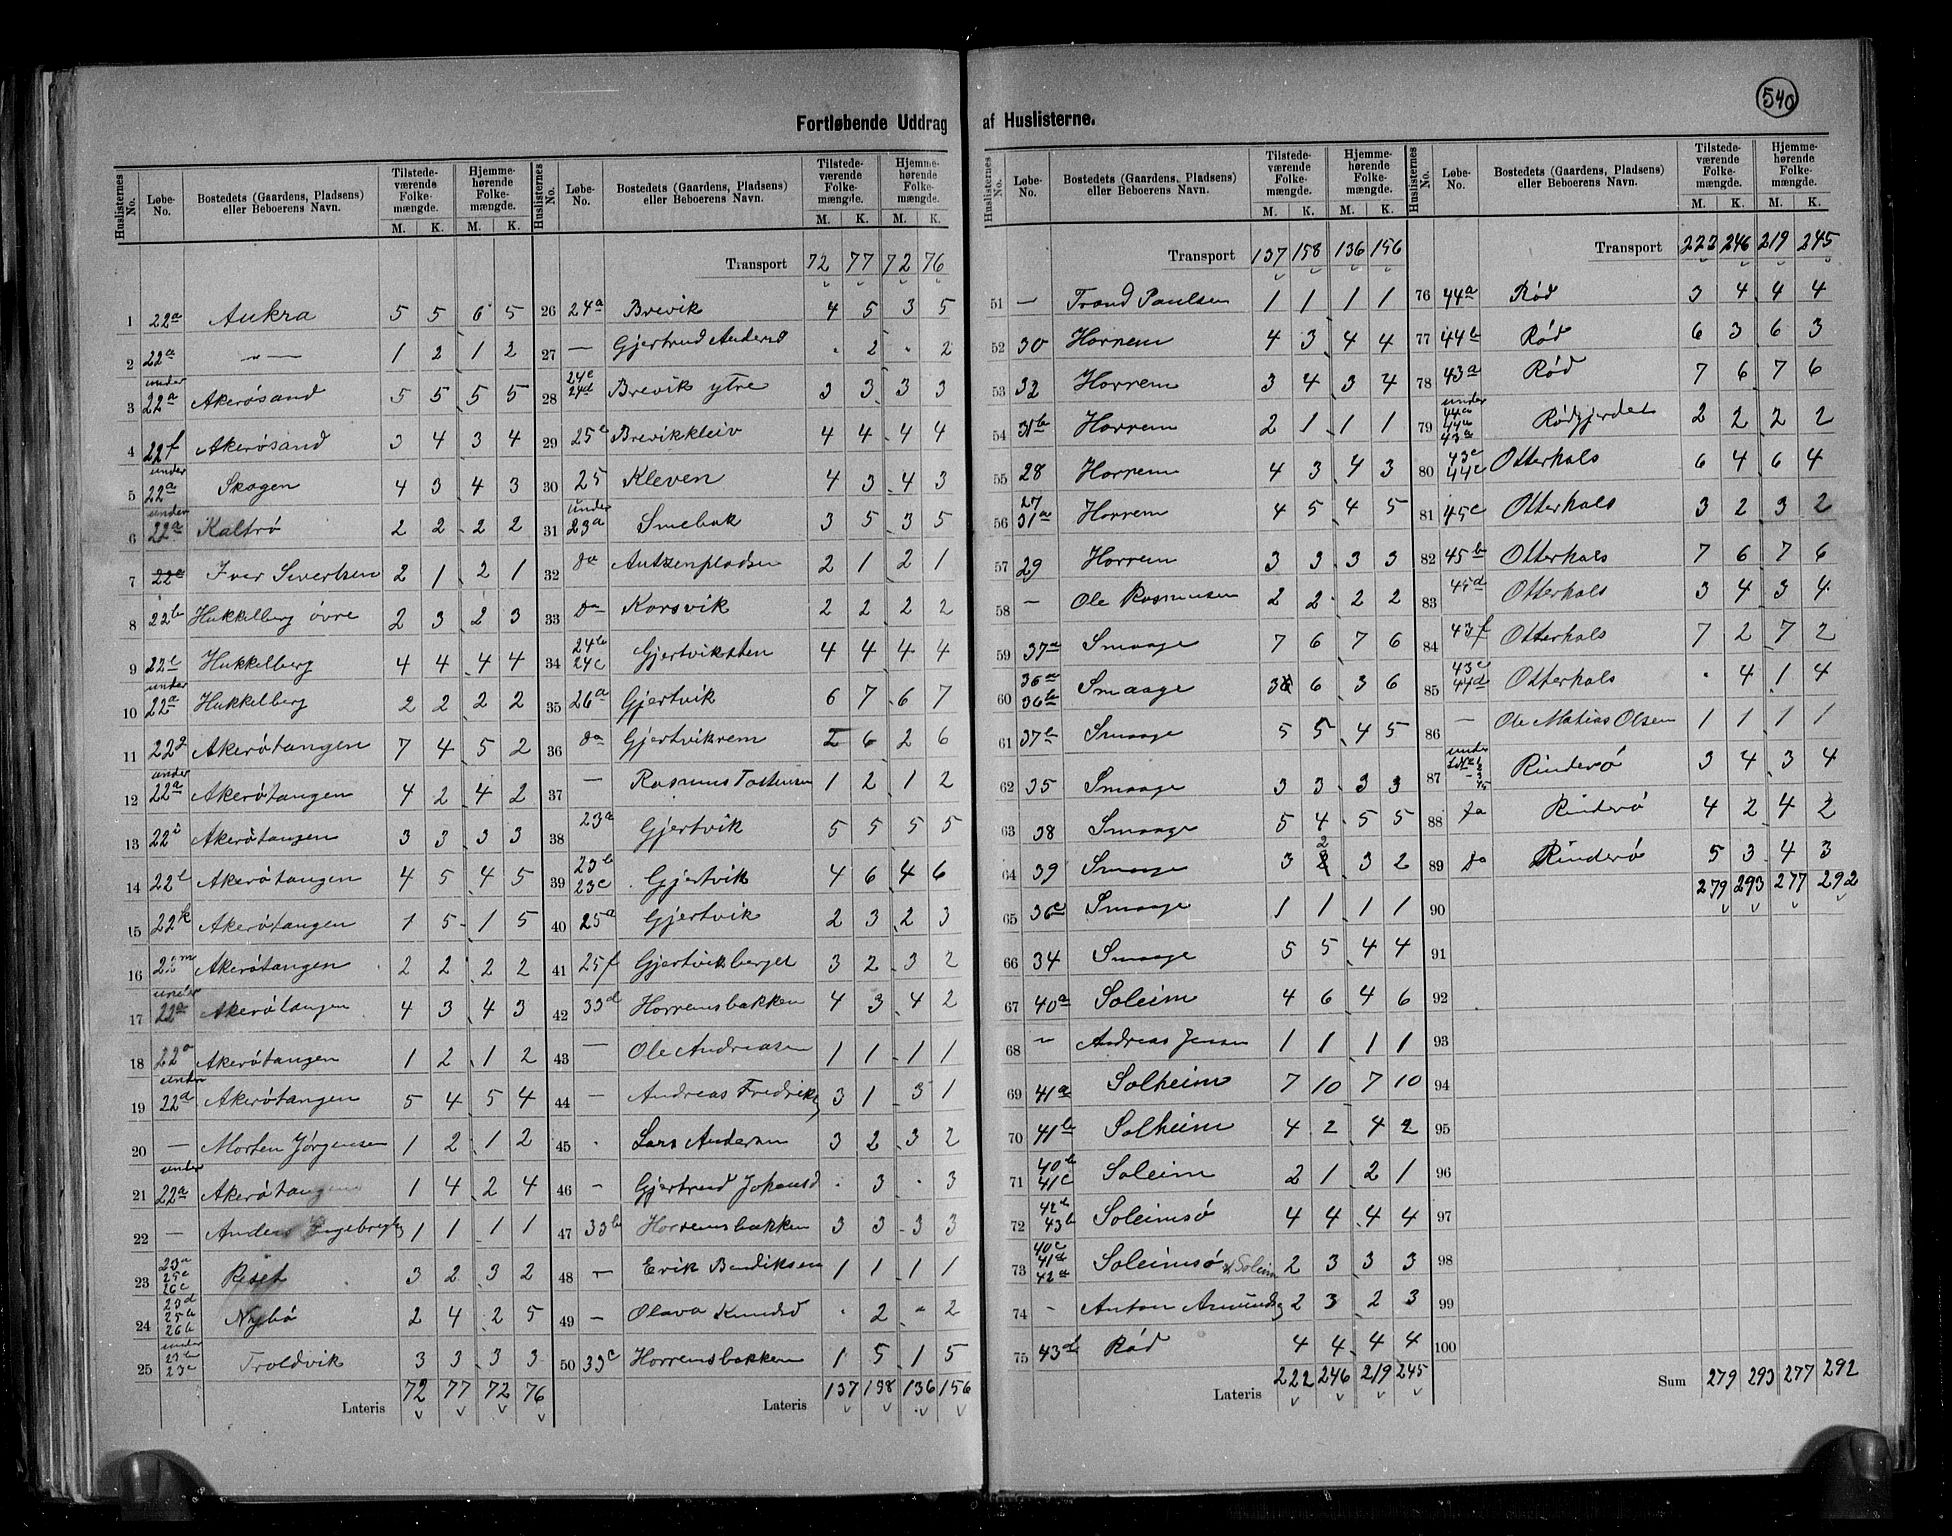 540
Fortløbende Uddrag af Huslisterne.
Huslisternes No. Løbe-No. Bostedets (Gaardens, Pladsens) eller Beboerens Navn. Tilstedeværende Folkemængde. M. K. Hjemmehørende Folkemængde. M. K.
1 22a Aukra 5 5 6 5
2 22a —"— 1 2 1 2
3 under 22a Akerøsand 5 5 5 5
4 22f Akerøsand 3 4 3 4
5 under 22a Skogen 4 3 4 3
6 under 22a Kaltrø 2 2 2 2
7 22a Iver Sivertsen 2 1 2 1
8 22b Hukkelberg øvre 2 3 2 3
9 22c Hukkelberg 4 4 4 4
10 under 22a Hukkelberg 2 2 2 2
11 22g Akerøtangen 7 4 5 2
12 under 22a Akerøtangen 4 2 4 2
13 22i Akerøtangen 3 3 3 3
14 22l Akerøtangen 4 5 4 5
15 22k Akerøtangen 1 5 1 5
16 22m Akerøtangen 2 2 2 2
17 under 22a Akerøtangen 4 3 4 3
18 22a Akerøtangen 1 2 1 2
19 under 22a Akerøtangen 5 4 5 4
20 — Morten Jørgensen 1 2 1 2
21 under 22a Akerøtangen 1 4 2 4
22 — Anders Engebregts 1 1 1 1
23 23a 25c 26c Reset 3 2 3 2
24 23d 25a 26b Nybø 2 4 2 5
25 under 23b 23c Troldvik 3 3 3 3
Lateris 72 77 72 76
Huslisternes No. Løbe-No. Bostedets (Gaardens, Pladsens) eller Beboerens Navn. Tilstedeværende Folkemængde. M. K. Hjemmehørende Folkemængde. M. K.
Transport 72 77 72 76
26 24a Brevik 4 5 3 5
27 — Gjertrud Andersd . 2 . 2
28 24e 24d Brevik ytre 3 3 3 3
29 25e Brevikkleiv 4 4 4 4
30 25 Kleven 4 3 4 3
31 under 23a Smebak 3 5 3 5
32 do Antzenpladsen 2 1 2 1
33 do Korsvik 2 2 2 2
34 24b 24c Gjertviksten 4 4 4 4
35 26a Gjertvik 6 7 6 7
36 do Gjertvikrem 2 6 2 6
37 — Rasmus Tostensen 1 2 1 2
38 23a Gjertvik 5 5 5 5
39 23b 23c Gjertvik 4 6 4 6
40 25a Gjertvik 2 3 2 3
41 25f Gjertviksberget 3 2 3 2
42 33d Horremsbakken 4 3 4 2
43 — Ole Andreasen 1 1 1 1
44 — Andreas Fredriks 3 1 3 1
45 . Lars Andersen 3 2 3 2
46 — Gjertrud Johansd . 3 . 3
47 33b Horremsbakken 3 3 3 3
48 — Erik Bendiksen 1 1 1 1
49 — Olava Knudsd . 2 . 2
50 33c Horremsbakken 1 5 1 5
Lateris 137 158 136 156
Huslisternes No. Løbe-No. Bostedets (Gaardens, Pladsens) eller Beboerens Navn. Tilstedeværende Folkemængde. M. K. Hjemmehørende Folkemængde. M. K.
Transport 137 158 136 156
51 — Trond Paulsen 1 1 1 1
52 30 Horrem 4 3 4 4
53 32 Horrem 3 4 3 4
54 31b Horrem 2 1 1 1
55 28 Horrem 4 3 4 3
56 27 31a Horrem 4 5 4 5
57 29 Horrem 3 3 3 3
58 — Ole Rasmussen 2 2 2 2
59 37a Smaage 7 6 7 6
60 36a 36b Smaage 3 6 3 6
61 37b Smaage 5 5 4 5
62 35 Smaage 3 3 3 3
63 38 Smaage 5 4 5 5
64 39 Smaage 3 2 3 2
65 36c Smaage 1 1 1 1
66 34 Smaage 5 5 4 4
67 40a Soleim 4 6 4 6
68 — Andreas Jensen 1 1 1 1
69 41a Solheim 7 10 7 10
70 41b Solheim 4 2 4 2
71 40b 41c Soleim 2 1 2 1
72 42b 43b Soleimsø 4 4 4 4
73 40c 41d 42a Soleimsø x Soleim 2 3 3 3
74 - Anton Amunds 2 3 2 3
75 43d Rød 4 4 4 4
Lateris 222 246 219 245
Huslisternes No. Løbe-No. Bostedets (Gaardens, Pladsens) eller Beboerens Navn. Tilstedeværende Folkemængde. M. K. Hjemmehørende Folkemængde. M. K.
Transport 222 246 219 245
76 44a Rød 3 4 4 4
77 44b Rød 6 3 6 3
78 43a Rød 7 6 7 6
79 under 44a 44a 43a Rødgjerdet 2 2 2 2
80 43c 44c Otterhals 6 4 6 4
81 45c Otterhals 3 2 3 2
82 45b Otterhals 7 6 7 6
83 45d Otterhals 3 4 3 4
84 43f Otterhals 7 2 7 2
85 43e 44d Otterhals . 4 1 4
86 — Ole Matias Olsen 1 1 1 1
87 under Rinderø 3 4 3 4
88 do Rinderø 4 2 4 2
89 do Rinderø 5 3 4 3
279 293 277 292
90
91
92
93
94
95
96
97
98
99
100
Sum 279 293 277 292